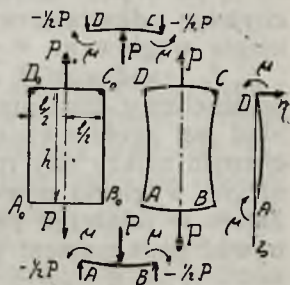 -½P D C -½P
μ P μ
P P
D₀ C₀ D C D μ η
l/2 l/2
h
A₀ B₀ A B μ A
P P ζ
μ P μ
-½P A B -½P